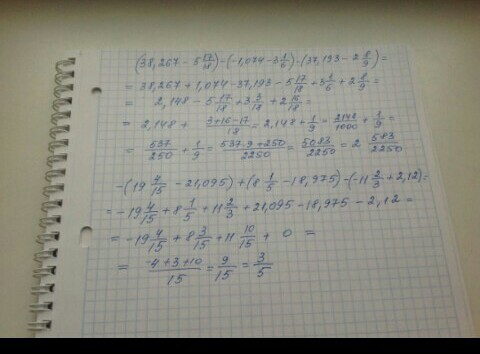 (38,267 - 5 17/18) - (-1,074 - 3 1/6) - (37,193 - 2 8/9) =
= 38,267 + 1,074 - 37,193 - 5 17/18 + 3 1/6 + 2 8/9 =
= 2,148 - 5 17/18 + 3 3/18 + 2 16/18 =
= 2,148 + (3+16-17)/18 = 2,148 + 1/9 = 2148/1000 + 1/9 =
= 537/250 + 1/9 = (537·9+250)/2250 = 5083/2250 = 2 583/2250
-(19 4/15 - 21,095) + (8 1/5 - 18,975) - (-11 2/3 + 2,12) =
= -19 4/15 + 8 1/5 + 11 2/3 + 21,095 - 18,975 - 2,12 =
= -19 4/15 + 8 3/15 + 11 10/15 + 0 =
= (-4+3+10)/15 = 9/15 = 3/5